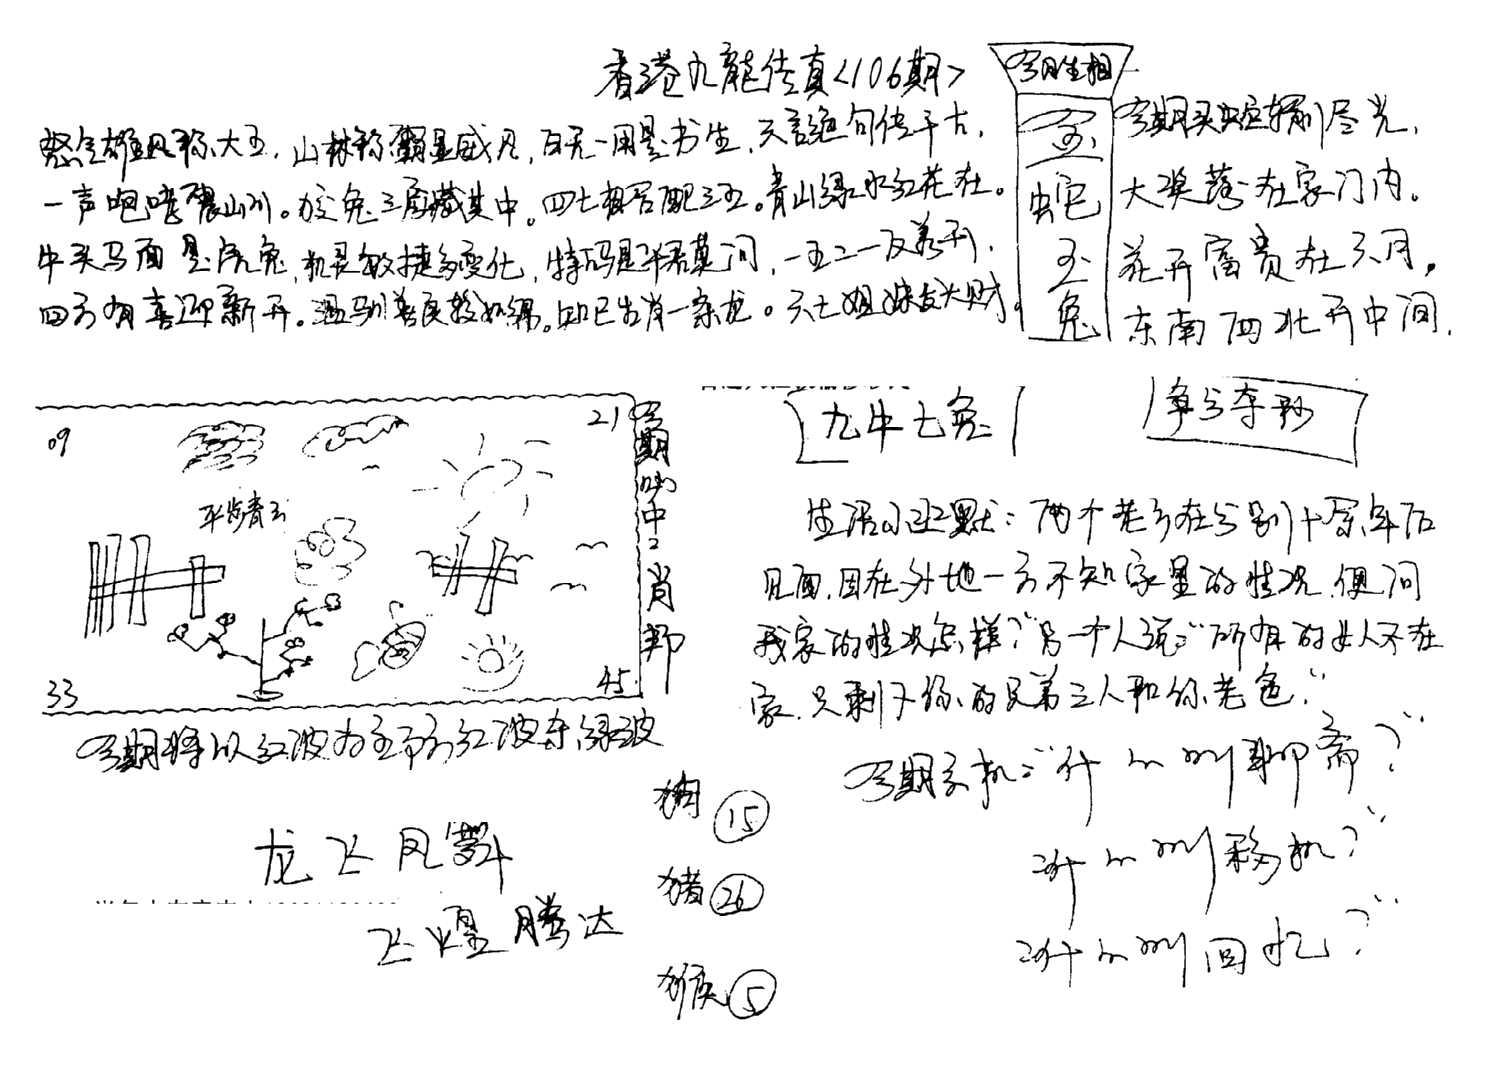 香港九龍传真<106期>
今期生相
怒气雄风称大王，山林称霸显威风，百无一用是书生，天言绝句传千古，
一声咆哮震山川。狡兔三窟藏其中。四七相合配三五。青山绿水红花在。
牛头马面是虎兔，机灵敏捷多变化，特码是平若莫问，一五二一反着开，
四方有喜迎新开。温驯善良较如绵。如己生肖一条龙。六七姐妹发大财。
玉
蛇
玉
兔
今期买中尽光，
大奖落在家门内。
花开富贵在六月，
东南西北开中间，
09
21
平步青云
33
45
今期必中二肖邦
九牛七兔
争分夺秒
生活小幽默：两个老乡在分别十余年后
见面，因在外地一方不知家里的情况，便问
我家的情况怎样？"另一个人说："所有的女人不在
家，只剩下你的兄弟三人和你老爸"
今期玄机："什么叫聊斋？"
"什么叫移机？"
"什么叫回忆？"
今期特以红波为主命中红波夺绿波
龙飞凤舞
飞煌腾达
15
猪 26
猴 5